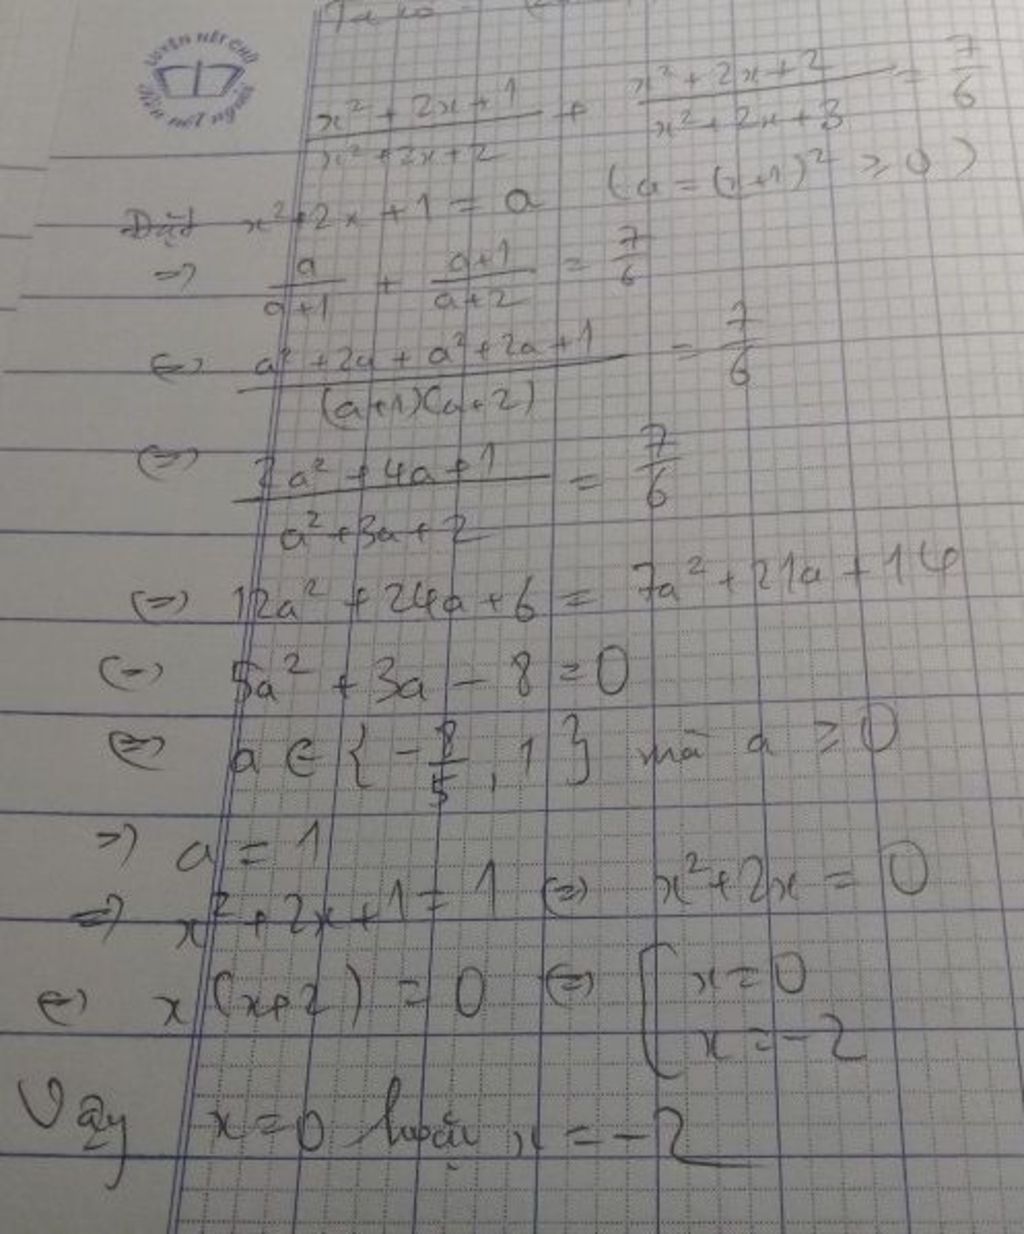 LUYỆN NÉT CHỮ
x² + 2x + 1 / x² + 2x + 2 + x² + 2x + 2 / x² + 2x + 3 = 7/6
Đặt x² + 2x + 1 = a (a = (x+1)² ≥ 0)
=> a/a+1 + a+1/a+2 = 7/6
<=> a² + 2a + a² + 2a + 1 / (a+1)(a+2) = 7/6
<=> 2a² + 4a + 1 / a² + 3a + 2 = 7/6
<=> 12a² + 24a + 6 = 7a² + 21a + 14
<=> 5a² + 3a - 8 = 0
<=> a ∈ { -8/5, 1 } mà a ≥ 0
=> a = 1
=> x² + 2x + 1 = 1 <=> x² + 2x = 0
<=> x(x+2) = 0 <=> [ x = 0
x = -2
Vậy x = 0 hoặc x = -2